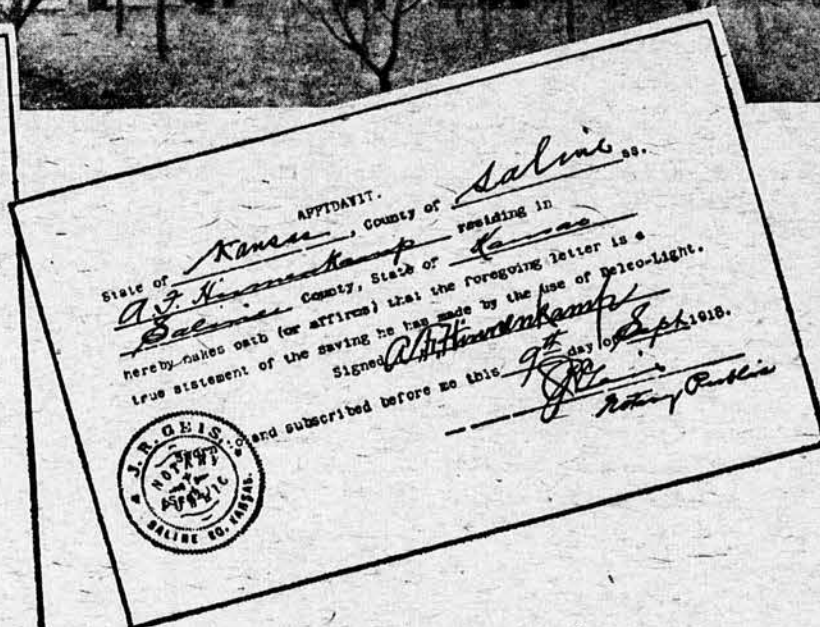 AFFIDAVIT.
State of Kansas, County of Saline ss.
A. F. Hinnenkamp residing in
Saline County, State of Kansas
hereby makes oath (or affirms) that the foregoing letter is a
true statement of the saving he has made by the use of Delco-Light.
Signed A. F. Hinnenkamp
Sworn to and subscribed before me this 9th day of Sept 1918.
Notary Public
J. R. GEIS
NOTARY
PUBLIC
SALINE CO. KANSAS.